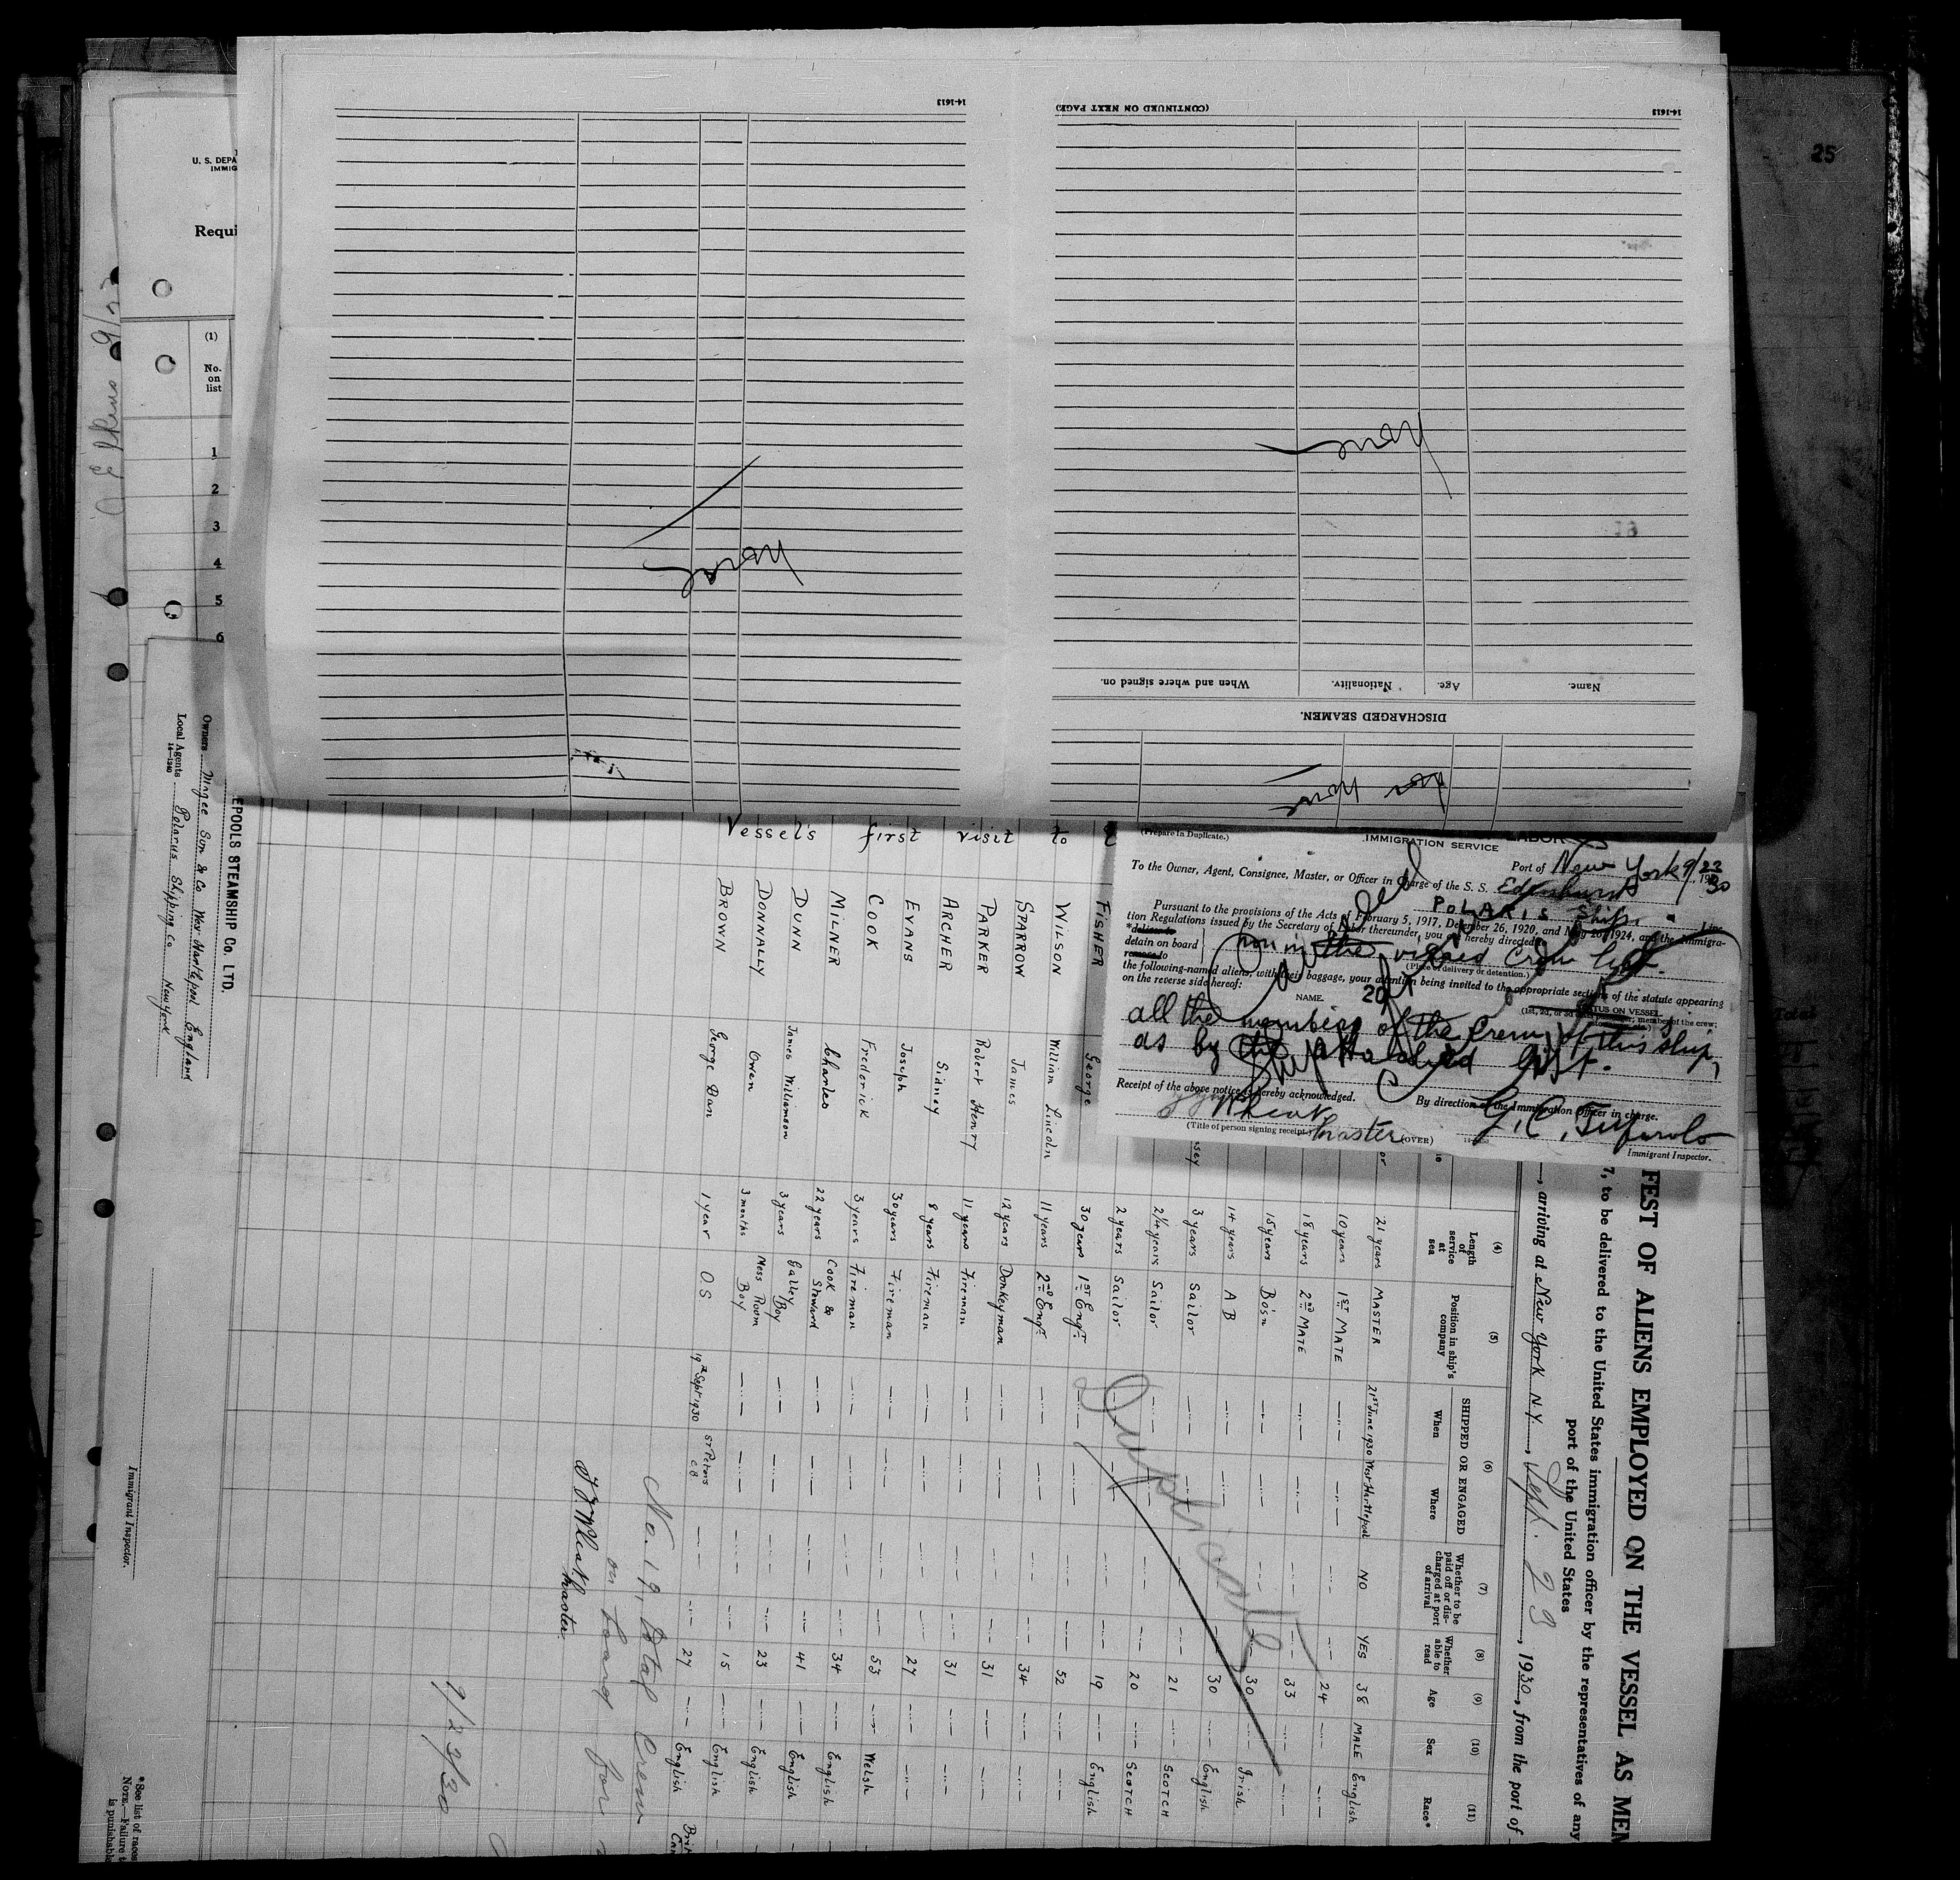 14-1613
(CONTINUED ON NEXT PAGE)
14-1613
None
None
Name.
Age.
Nationality.
When and where signed on.
DISCHARGED SEAMEN.
None
25
U. S. DEPA
IMMIG
Requi
(1)
No.
on
list
1
2
3
4
5
6
9/23
Owners
Son & Co West Hartlepool England
Local Agents Polarus Shipping Co. New York
14-1240
EPOOLS STEAMSHIP Co. LTD.
Immigrant Inspector.
*See list of races
NOTE.—Failure t
is punishabl
(Prepare in Duplicate.)
LABOR
IMMIGRATION SERVICE
Port of New York 9/23, 1930
To the Owner, Agent, Consignee, Master, or Officer in Charge of the S. S.
POLARIS Ship. Line
Pursuant to the provisions of the Acts of February 5, 1917, December 26, 1920, and May 26, 1924, and the Immigra-
tion Regulations issued by the Secretary of Labor thereunder, you are hereby directed
*deliver to
detain on board
remove to
non in the visaed Crew list.
(Place of delivery or detention.)
the following-named aliens, with their baggage, your attention being invited to the appropriate sections of the statute appearing
on the reverse side hereof:
NAME.
20
STATUS ON VESSEL
all the members of the Crew of this ship,
as by the attached list.
Receipt of the above notice is hereby acknowledged.
By direction of the Immigration Officer in charge.
Wheat
Master
(Title of person signing receipt.)
(OVER)
Immigrant Inspector.
FEST OF ALIENS EMPLOYED ON THE VESSEL AS MEM
7, to be delivered to the United States immigration officer by the representatives of any
port of the United States
, arriving at New York N.Y., Sept. 23, 1930, from the port of
(4) Length of service at sea
(5) Position in ship's company
(6) SHIPPED OR ENGAGED
When
Where
(7) Whether to be paid off or dis-charged at port of arrival
(8) Whether able to read
(9) Age
(10) Sex
(11) Race*
21 years MASTER 21st June 1930 West Hartlepool NO YES 38 MALE English
10 years 1ST MATE 24
18 years 2nd MATE 33
15 years Bo'sn 30 Irish
14 years A B 30 English
3 years Sailor 21 SCOTCH
2¼ years Sailor 20 SCOTCH
2 years Sailor 19 English
FISHER George 30 years 1st Engr. 52
WILSON William Lincoln 11 years 2nd Engr. 34
SPARROW James 12 years Donkeyman 31
PARKER Robert Henry 11 years Fireman 31
ARCHER Sidney 8 years Fireman 27
EVANS Joseph 30 years Fireman 53 Welsh
COOK Frederick 3 years Fireman 34 English
MILNER Charles 22 years Cook & Steward 41 English
DUNN James Williamson 3 years Galley Boy 23 English
DONNALLY Owen 3 months Mess Room Boy 15 English
BROWN George Dan 1 year O.S 19th Sept 1930 St Peters C.B. 27 English
Vessel's first visit to
No. 19, total Crew
on board for
Wheat
Master
9/23/30